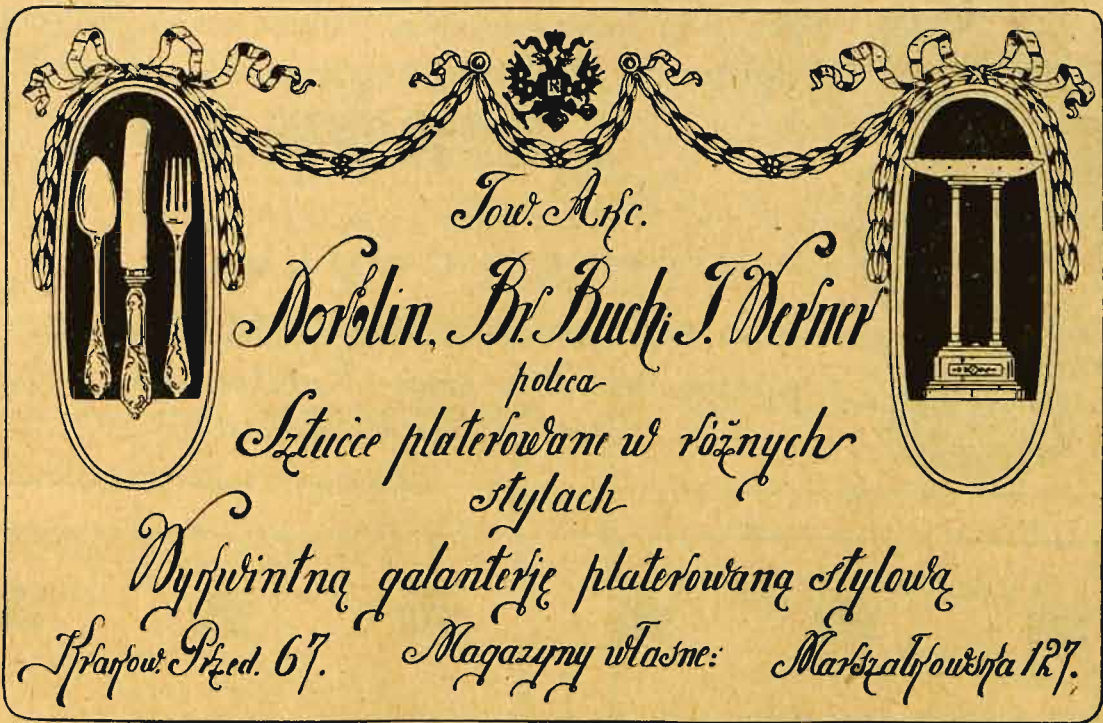 Tow. Akc.
Norblin, Br. Buch i T. Werner
poleca
Sztućce platerowane w różnych
stylach
Wykwintną galanterję platerowaną stylową
Krakow. Przed. 67. Magazyny własne: Marszałkowska 127.